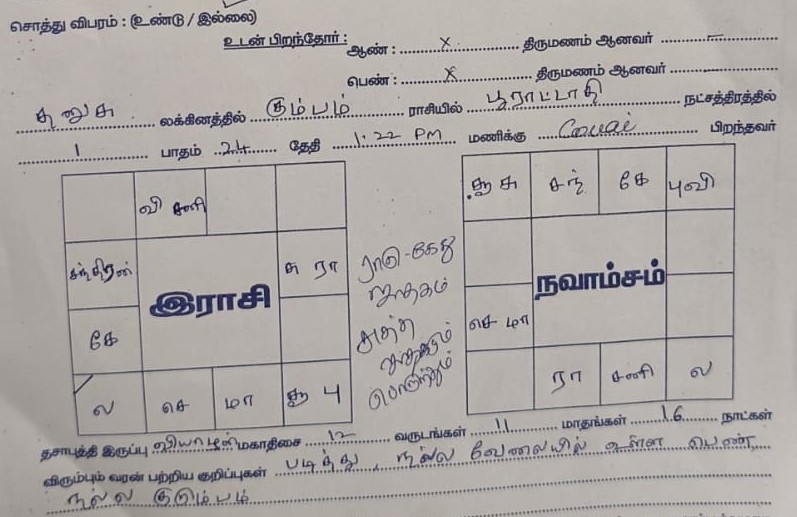 சொத்து விபரம் : (உண்டு / இல்லை)
உடன் பிறந்தோர் : ஆண் : x திருமணம் ஆனவர் –
பெண் : x திருமணம் ஆனவர்
தனுசு லக்கினத்தில் கும்பம் ராசியில் பூராட்டாதி நட்சத்திரத்தில்
1 பாதம் 24 தேதி 1.22 PM மணிக்கு Covai பிறந்தவர்
வி சனி
சந்திரன் சு ரா
இராசி
கே
ல செ மா சூ பு
ராகு - கேது
ஜாதகம்
சுத்த
ஜாதகம்
பொருந்தும்
சூ சு சந் கே பு வி
நவாம்சம்
செ மா
ரா சனி ல
தசாபுத்தி இருப்பு வியாழன் மகாதிசை 12 வருடங்கள் 11 மாதங்கள் 16 நாட்கள்
விரும்பும் வரன் பற்றிய குறிப்புகள் படித்து, நல்ல வேலையில் உள்ள பெண்
நல்ல குடும்பம்